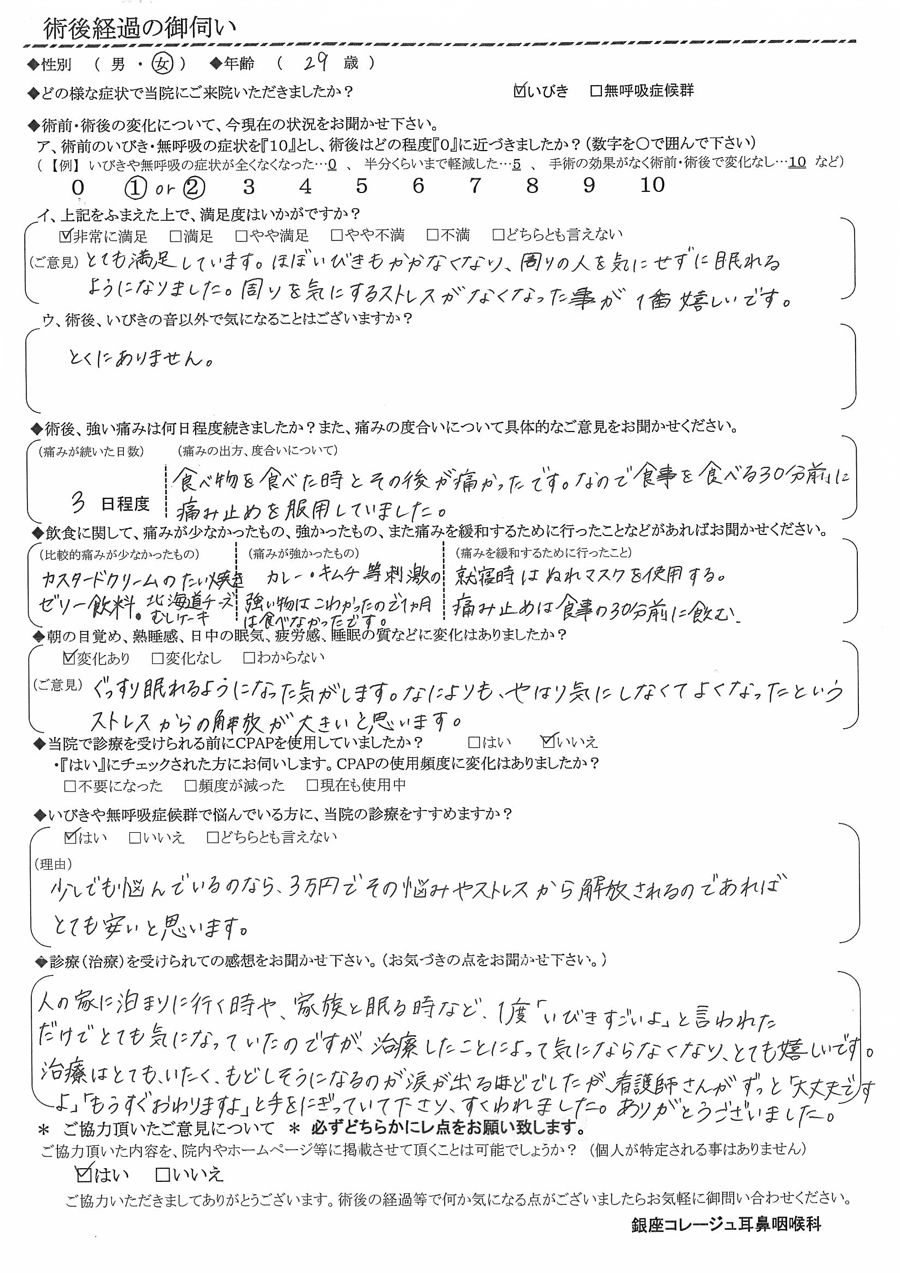 術後経過の御伺い
◆性別 ( 男 ・ 女 ) ◆年齢 ( 29 歳 )
◆どの様な症状で当院にご来院いただきましたか? ☑いびき □無呼吸症候群
◆術前・術後の変化について、今現在の状況をお聞かせ下さい。
ア、術前のいびき・無呼吸の症状を『10』とし、術後はどの程度『0』に近づきましたか?(数字を○で囲んで下さい)
(【例】 いびきや無呼吸の症状が全くなくなった…0 、 半分くらいまで軽減した…5 、 手術の効果がなく術前・術後で変化なし…10 など)
0 ① or ② 3 4 5 6 7 8 9 10
イ、上記をふまえた上で、満足度はいかがですか?
☑非常に満足 □満足 □やや満足 □やや不満 □不満 □どちらとも言えない
(ご意見) とても満足しています。ほぼいびきもかかなくなり、周りの人を気にせずに眠れる
ようになりました。周りを気にするストレスがなくなった事が 1番嬉しいです。
ウ、術後、いびきの音以外で気になることはございますか?
とくにありません。
◆術後、強い痛みは何日程度続きましたか?また、痛みの度合いについて具体的なご意見をお聞かせください。
(痛みが続いた日数) (痛みの出方、度合いについて)
食べ物を食べた時とその後が痛かったです。なので食事を食べる30分前に
3 日程度 痛み止めを服用していました。
◆飲食に関して、痛みが少なかったもの、強かったもの、また痛みを緩和するために行ったことなどがあればお聞かせください。
(比較的痛みが少なかったもの) (痛みが強かったもの) (痛みを緩和するために行ったこと)
カスタードクリームのたい焼き カレー・キムチ等刺激の 就寝時はぬれマスクを使用する。
ゼリー飲料。北海道チーズむしケーキ 強い物はこわかったので1ヵ月は食べなかったです。 痛み止めは食事の30分前に飲む。
◆朝の目覚め、熟睡感、日中の眠気、疲労感、睡眠の質などに変化はありましたか?
☑変化あり □変化なし □わからない
(ご意見) ぐっすり眠れるようになった気がします。なによりも、やはり気にしなくてよくなったという
ストレスからの解放が大きいと思います。
◆当院で診療を受けられる前にCPAPを使用していましたか? □はい ☑いいえ
・『はい』にチェックされた方にお伺いします。CPAPの使用頻度に変化はありましたか?
□不要になった □頻度が減った □現在も使用中
◆いびきや無呼吸症候群で悩んでいる方に、当院の診療をすすめますか?
☑はい □いいえ □どちらとも言えない
(理由)
少しでも悩んでいるのなら、3万円でその悩みやストレスから解放されるのであれば
とても安いと思います。
◆診療(治療)を受けられての感想をお聞かせ下さい。(お気づきの点をお聞かせ下さい。)
人の家に泊まりに行く時や、家族と眠る時など、1度「いびきすごいよ」と言われた
だけでとても気になっていたのですが、治療したことによって気にならなくなり、とても嬉しいです。
治療はとても、いたく、もどしそうになるのが涙が出るほどでしたが、看護師さんがずっと「大丈夫です
よ」「もうすぐおわりますよ」と手をにぎっていて下さり、すくわれました。ありがとうございました。
＊ ご協力頂いたご意見について ＊ 必ずどちらかにレ点をお願い致します。
ご協力頂いた内容を、院内やホームページ等に掲載させて頂くことは可能でしょうか? (個人が特定される事はありません)
☑はい □いいえ
ご協力いただきましてありがとうございます。術後の経過等で何か気になる点がございましたらお気軽に御問い合わせください。
銀座コレージュ耳鼻咽喉科